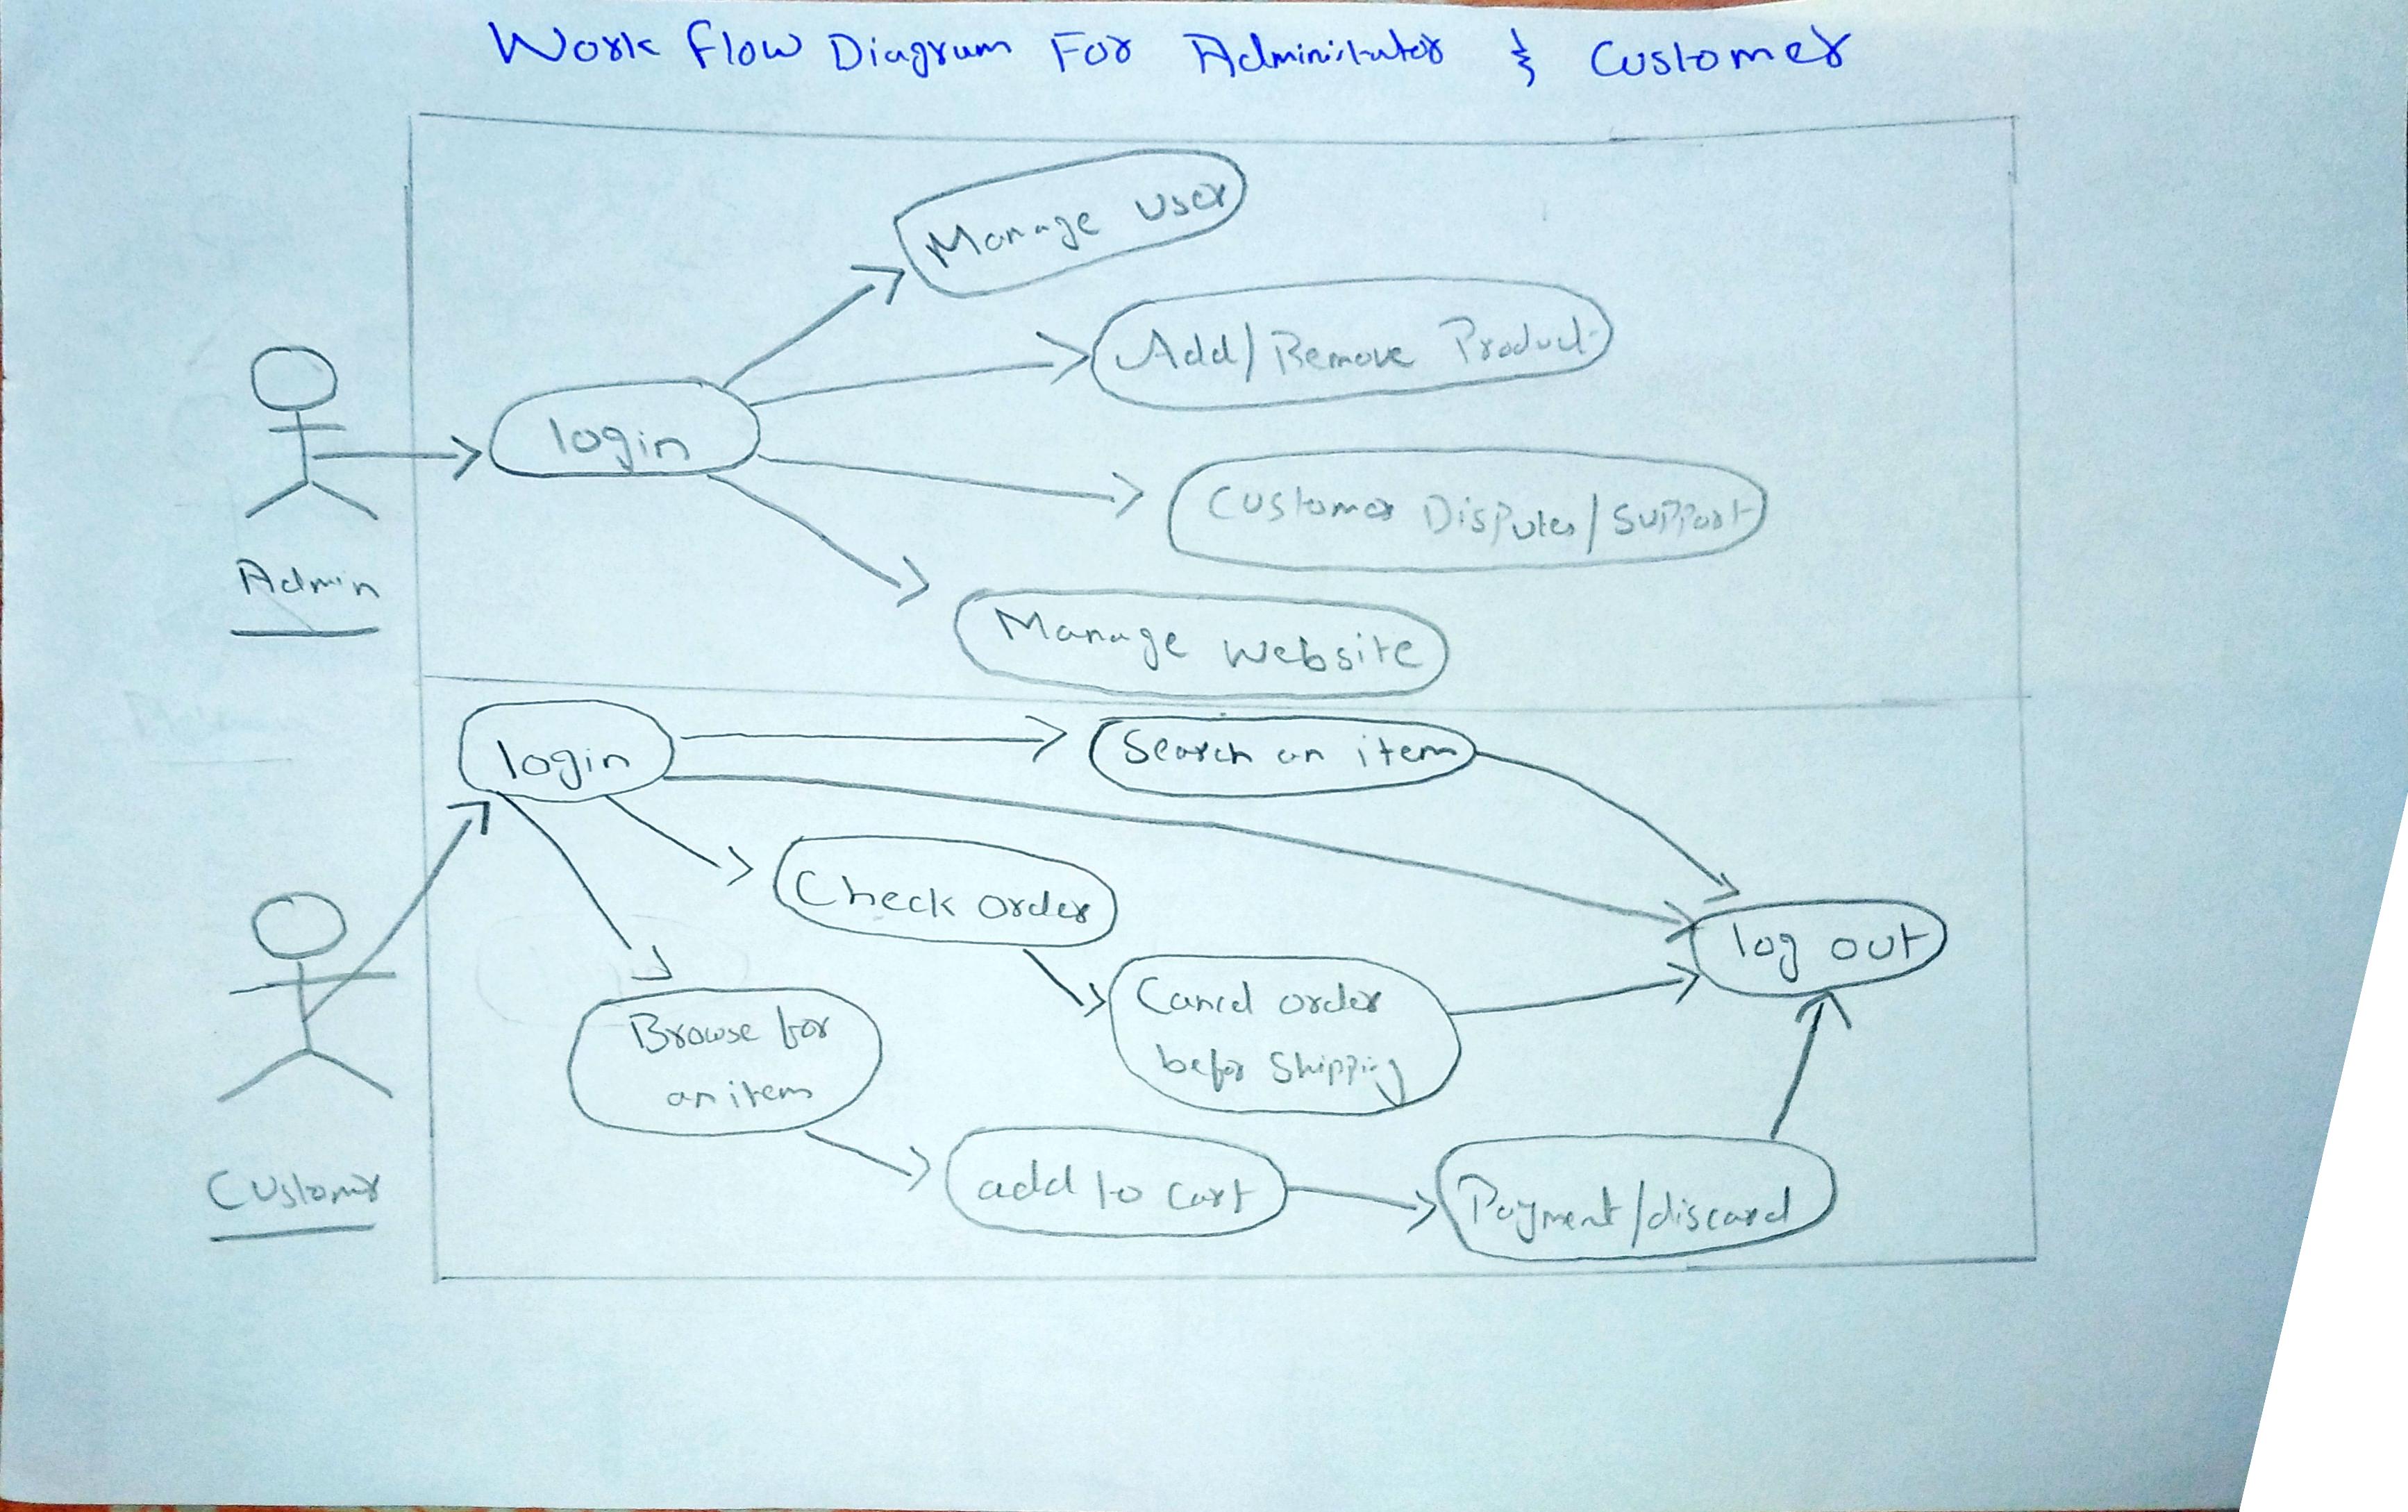 Work Flow Diagram For Administrator & Customer
Manage User
Add/Remove Product
login
Customer Disputes/Support
Admin
Manage Website
login
Search an item
Check order
log out
Cancel order
befor Shipping
Browse for
an item
Customer
add to cart
Payment/discard